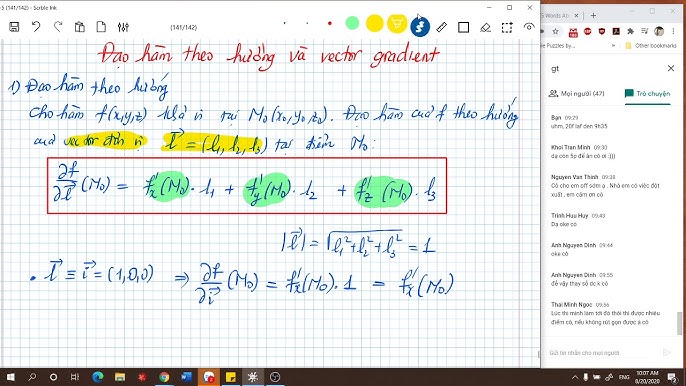 5 (141/142) - Scrble Ink
(141/142)
Đạo hàm theo hướng và vector gradient
1) Đạo hàm theo hướng
Cho hàm f(x,y,z) khả vi tại M₀(x₀,y₀,z₀). Đạo hàm của f theo hướng
của vector đơn vị l⃗ = (l₁, l₂, l₃) tại điểm M₀:
∂f/∂l⃗ (M₀) = f'ₓ(M₀). l₁ + f'ᵧ(M₀). l₂ + f'_z (M₀). l₃
|l⃗| = √(l₁² + l₂² + l₃²) = 1
• l⃗ ≡ i⃗ = (1,0,0) ⇒ ∂f/∂i⃗ (M₀) = f'ₓ(M₀). 1 = f'ₓ(M₀)
5 Words Ab
Puzzles by...
Other bookmarks
gt
Mọi người (47)
Trò chuyện
Bạn 09:29
uhm, 20f laf den 9h35
Khoi Tran Minh 09:30
dạ còn 5p để ăn cơ ơi :)))
Nguyen Van Thinh 09:38
Cô cho em off sớm ạ . Nhà em có việc đột
xuất , em cảm ơn cô
Trinh Huu Huy 09:43
Dạ oke cô
Anh Nguyen Dinh 09:44
oke cô
Anh Nguyen Dinh 09:55
đề vậy thay số dc k cô
Thai Minh Ngoc 09:56
Lúc thi mình làm tới đó thôi thì được nhiêu
điểm cô, nếu không rút gọn được á cô
Gửi tin nhắn cho mọi người
10:07 AM
ENG
8/20/2020